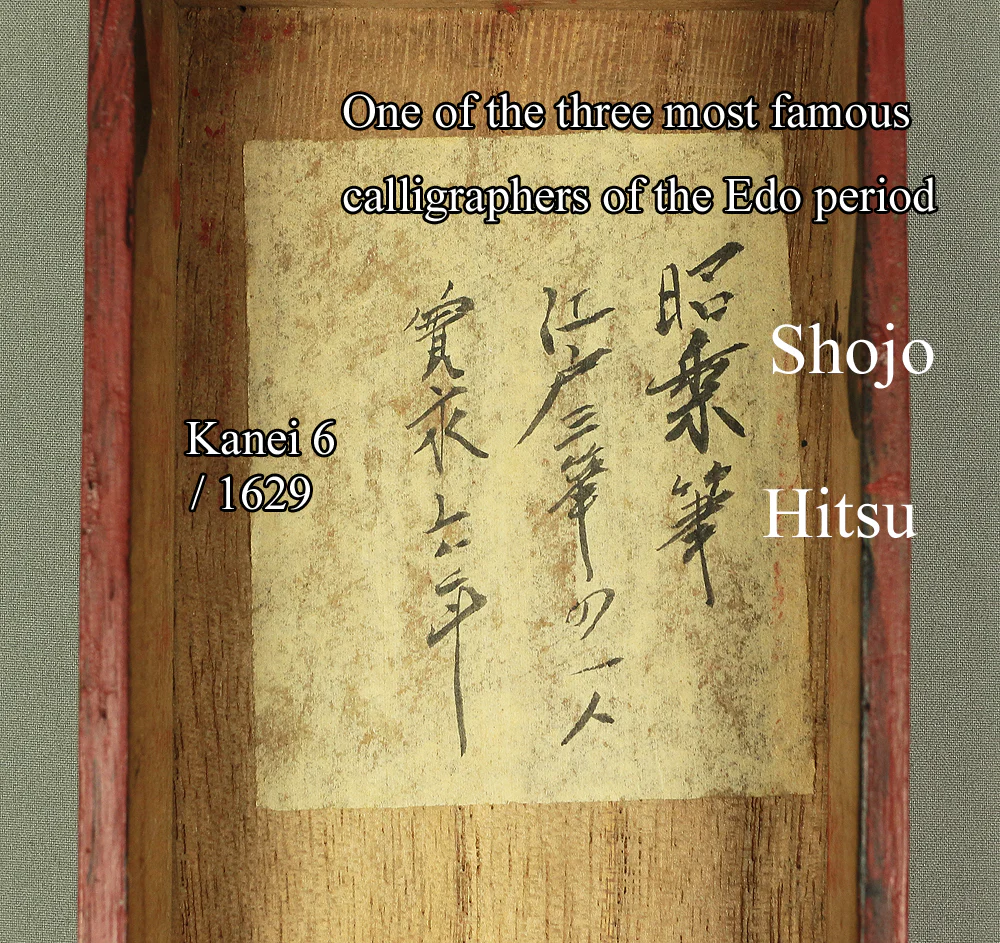 One of the three most famous
calligraphers of the Edo period
昭乗筆
Shojo
Hitsu
江戸三筆の一人
寛永六年
Kanei 6
/ 1629